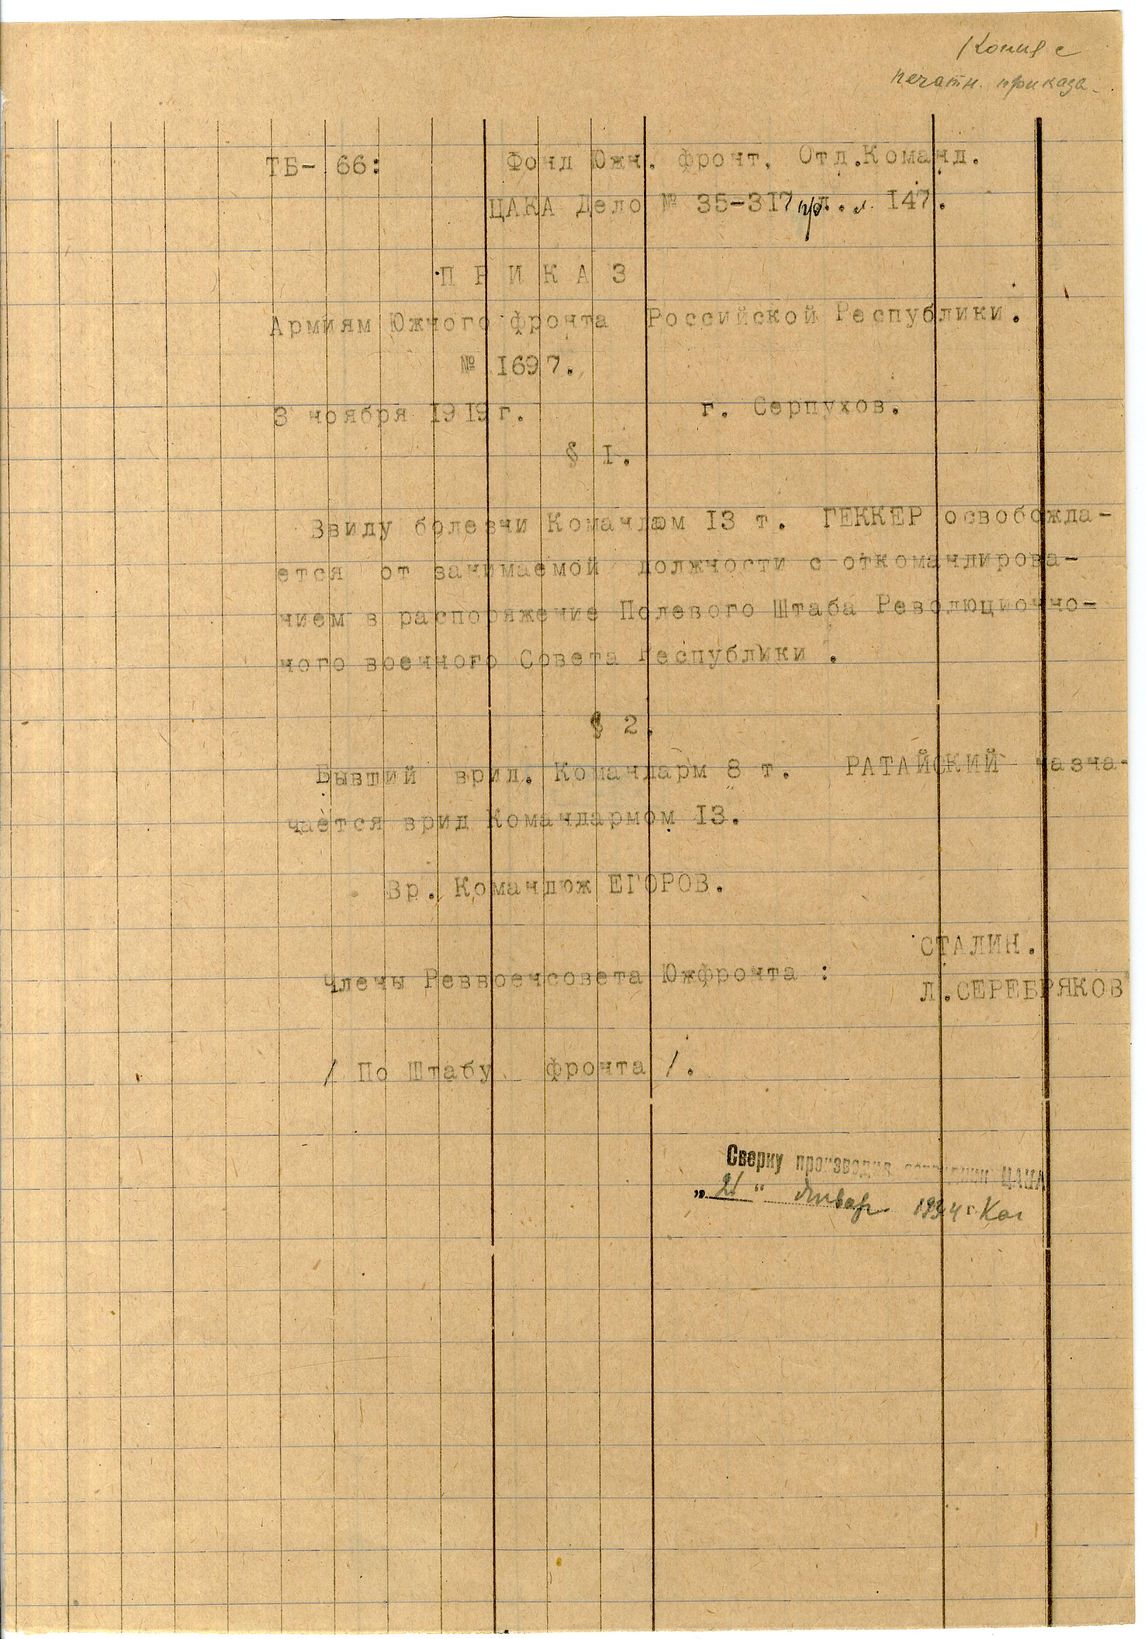 Копия с
печатн. приказа.
ТБ- 66: Фонд Южн. фронт. Отд.Команд.
ЦАКА Дело № 35-317 л. 147.
П Р И К А З
Армиям Южного фронта Российской Республики.
№ 1697.
3 ноября 1919г. г. Серпухов.
§ I.
Ввиду болезни Команлюм 13 т. ГЕККЕР освобожда-
ется от занимаемой должности с откомандирова-
нием в распоряжение Полевого Штаба Революционно-
ного военного Совета Республики .
§ 2.
Бывший врид. Командарм 8 т. РАТАЙСКИЙ назна-
чается врид Командармом 13.
Вр. Командюж ЕГОРОВ.
СТАЛИН.
Члены Реввоенсовета Южфронта :
Л.СЕРЕБРЯКОВ
/ По Штабу фронта /.
Сверку производил ЦАКА
„21“ январ 1934 г